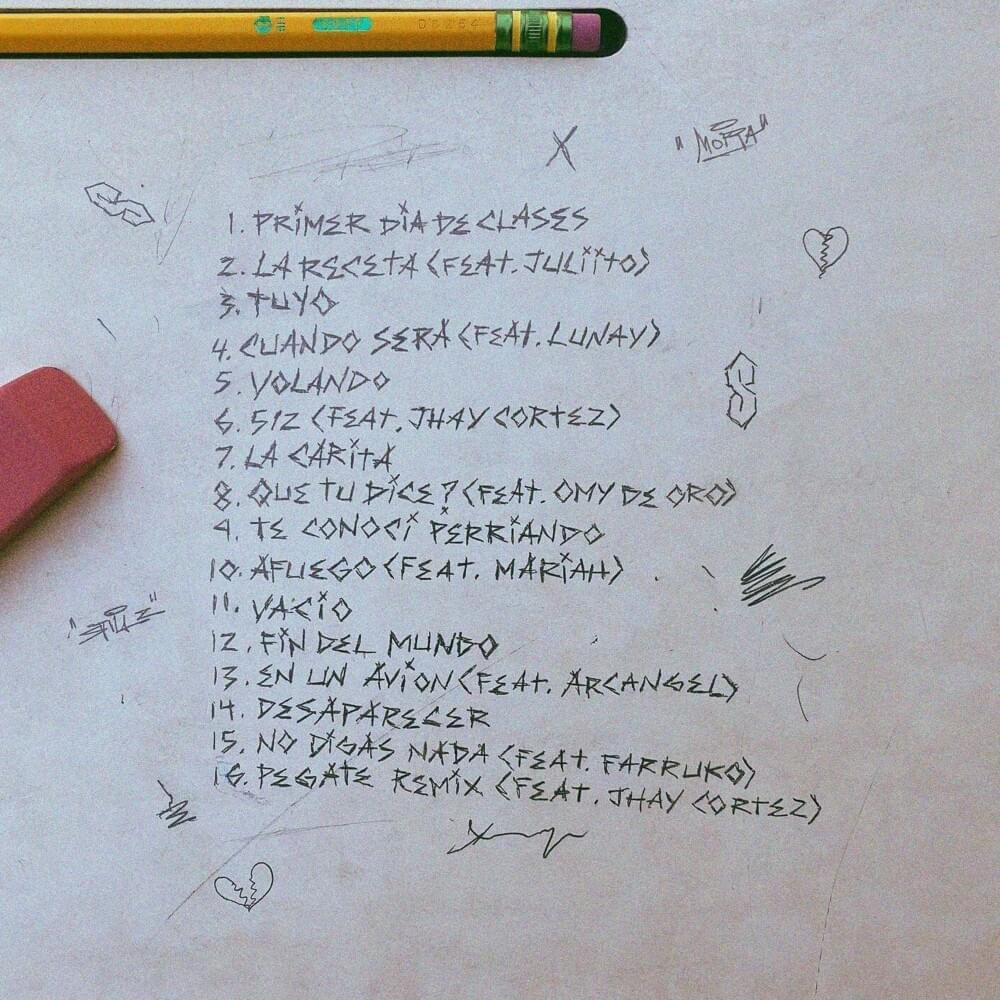 HB
"MORA"
1. PRiMER DiA DE CLASES
2. LA RECETA (FEAT. JULiiTO)
3. TUYO
4. CUANDO SERÁ (FEAT. LUNAY)
5. VOLANDO
6. 512 (FEAT. JHAY CORTEZ)
7. LA CARiTA
8. QUE TU DiCE? (FEAT. OMY DE ORO)
9. TE CONOCi PERRiANDO
10. AFUEGO (FEAT. MARiAH)
11. VACiO
12. FiN DEL MUNDO
13. EN UN AViON (FEAT. ARCANGEL)
14. DESAPARECER
15. NO DiGAS NADA (FEAT. FARRUKO)
16. PEGATE REMiX (FEAT. JHAY CORTEZ)